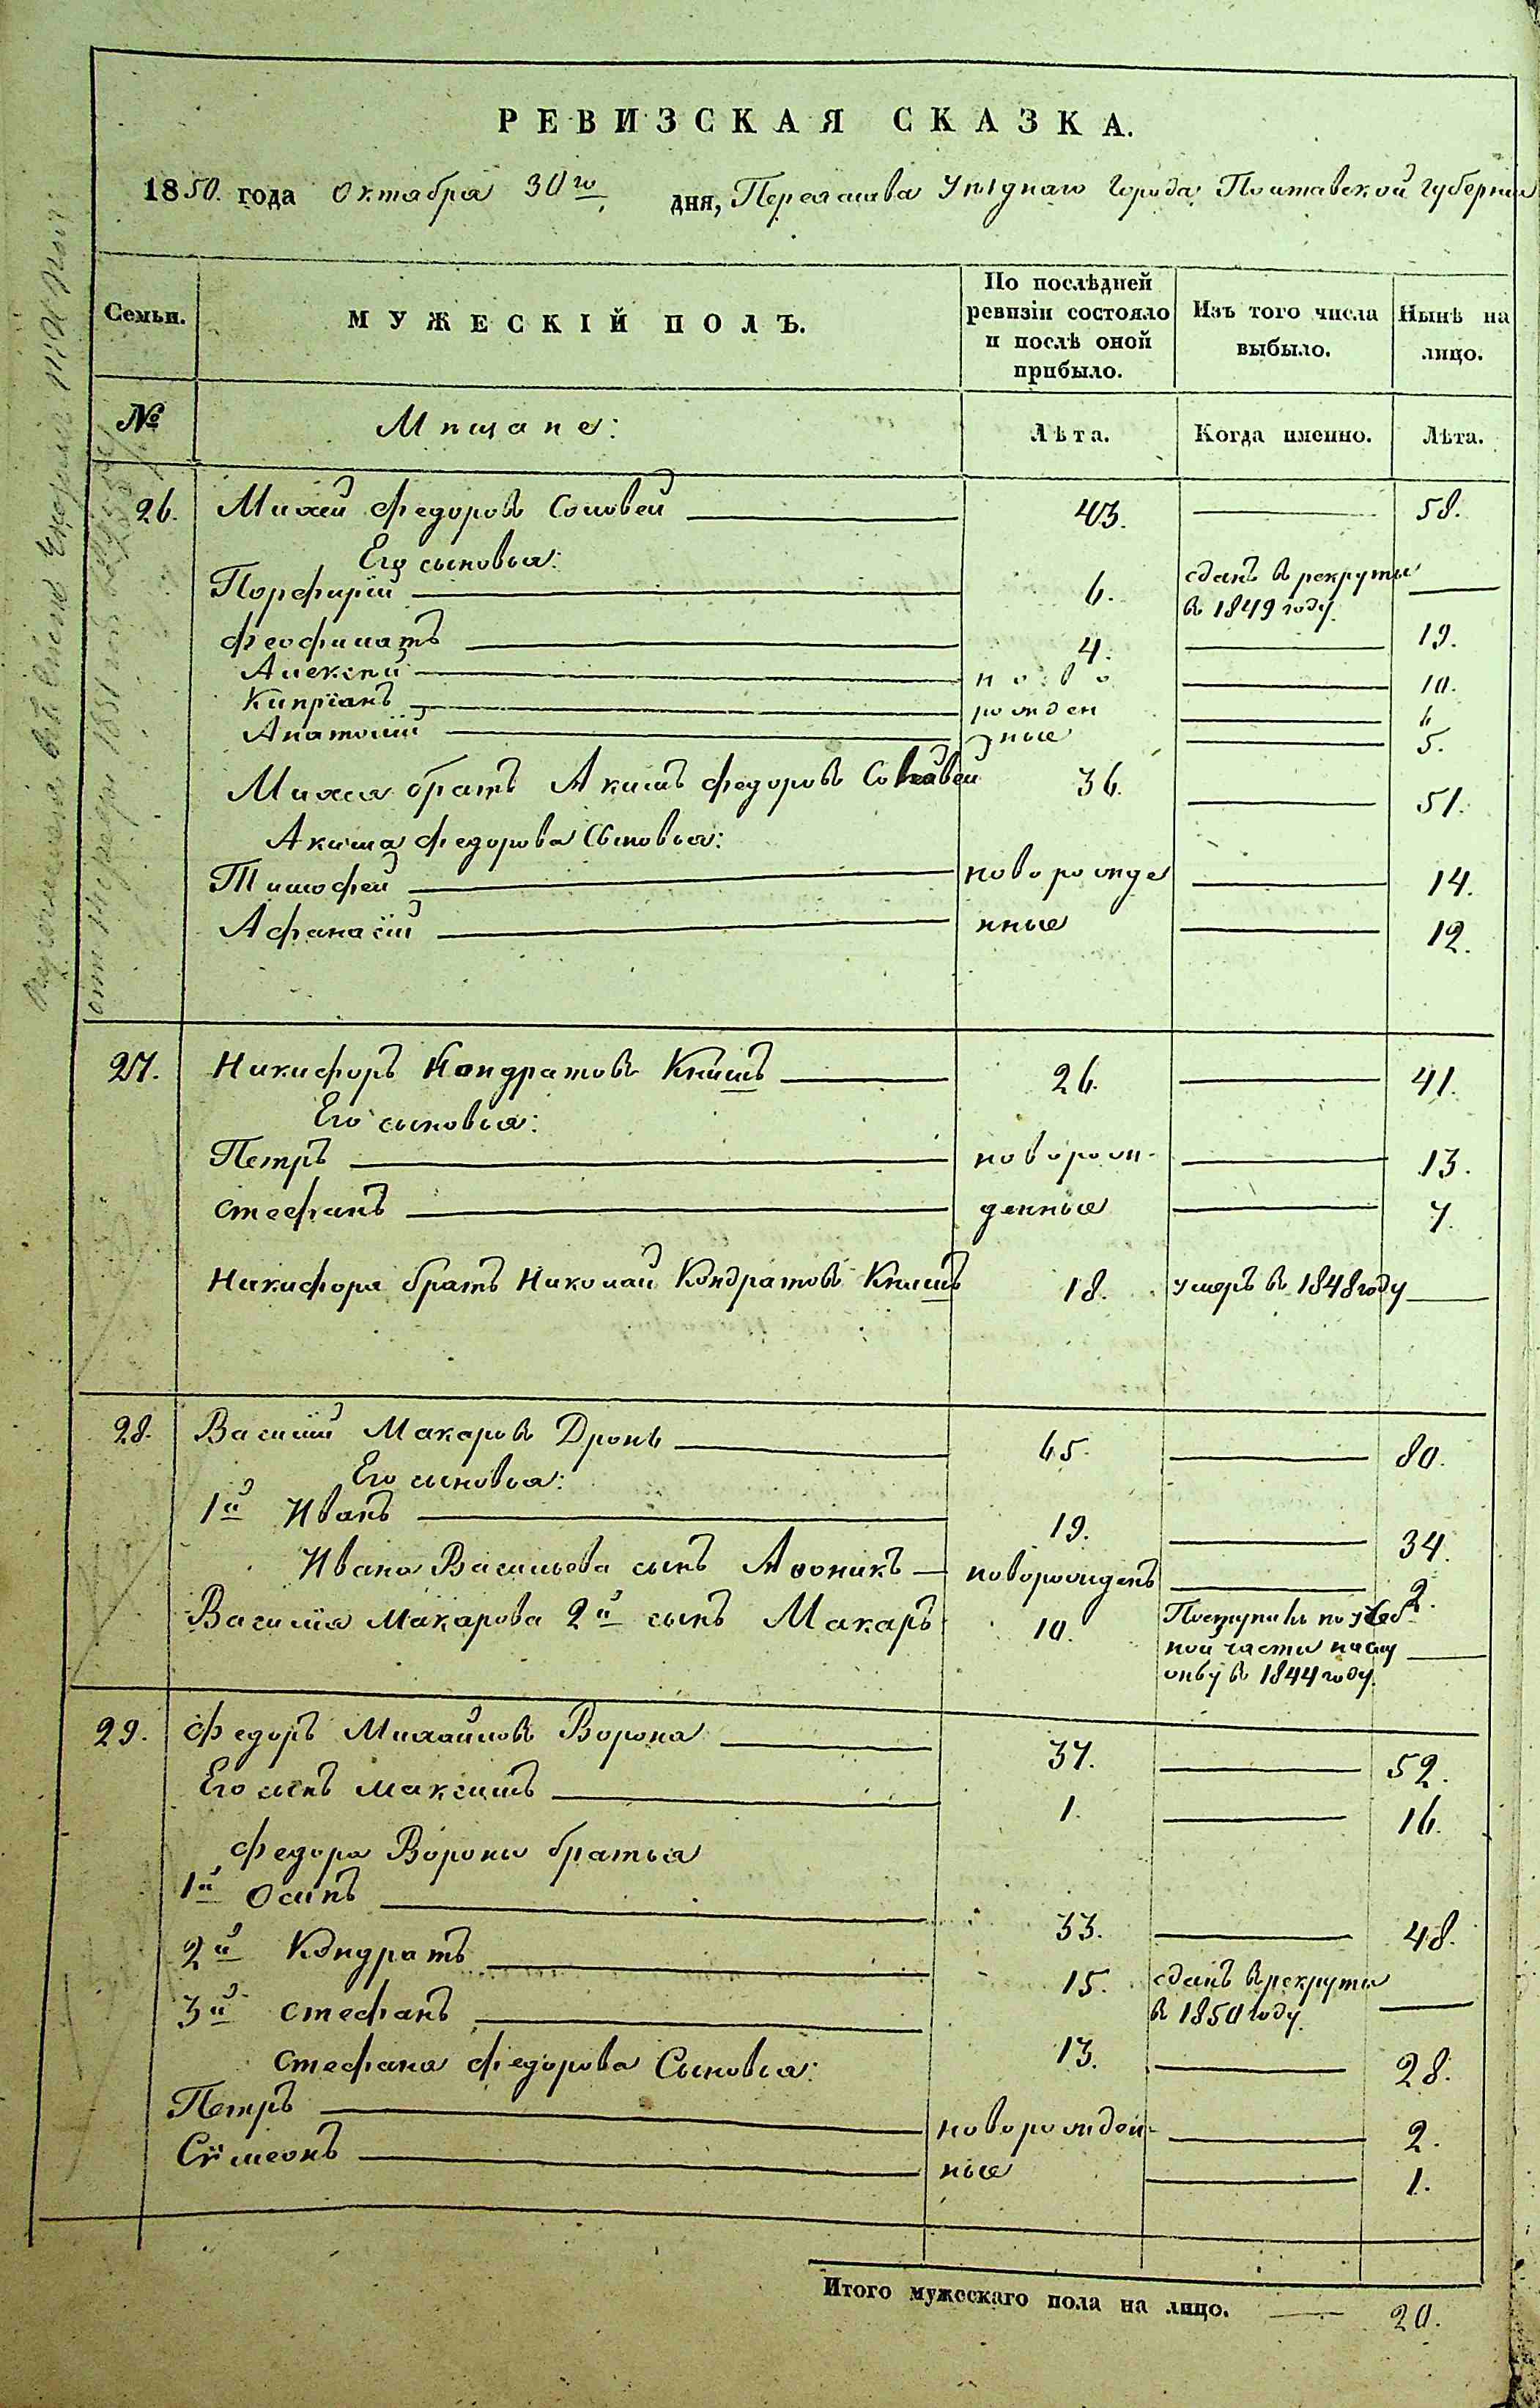 РЕВИЗСКАЯ СКАЗКА.
1850. года Октября 30го дня, Переяслава Уѣзднаго Города Полтавской Губерніи
Семьи.
МУЖЕСКІЙ ПОЛЪ.
По послѣдней ревизіи состояло и послѣ оной прибыло.
Изъ того числа выбыло.
Нынѣ на лицо.
№
Мѣщане:
Лѣта.
Когда именно.
Лѣта.
26. Михей Федоровъ Соловей 43. 58.
Его сыновья:
Порфирій 6. сданъ в рекруты в 1849 году.
Феофилатъ 4. 19.
Алексѣй ново 10.
Кипріанъ рожден 6
Анатолій ные 5.
Михея братъ Акимъ Федоровъ Соловей 36. 51.
Акима Федорова Сыновья:
Тимофей новорожде 14.
Афанасій нные 12.
27. Никифоръ Кондратовъ Книшъ 26. 41.
Его сыновья:
Петръ новорож- 13.
Стефанъ денные 7.
Никифора братъ Николай Кондратовъ Книшъ 18. умеръ в 1848 году
28. Василій Макаровъ Дронь 65. 80.
Его сыновья:
1й Иванъ 19. 34.
Ивана Васильева сынъ новорожденъ 2.
Василія Макарова 2й сынъ Макаръ 10. Поступилъ по учеб
ной части
в 1844 году.
29. Федоръ Михайловъ Ворона 37. 52.
Его сынъ Максимъ 1. 16.
Федора Вороны братья
1й Осипъ 33. 48.
2й Кондратъ 15. сданъ в рекруты в 1850 году.
3й Стефанъ 13. 28.
Стефана Федорова Сыновья:
Петръ новорожден- 2.
Сѵмеонъ ные 1.
Итого мужескаго пола на лицо. 20.